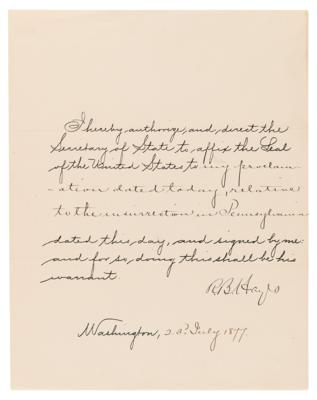 I hereby authorize, and, direct the
Secretary of State to, affix the Seal
of the United States to my proclam-
-ation dated today, relative
to the insurrection in Pennsylvania
dated this day, and signed by me:
and for so, doing this shall be his
warrant.
R.B. Hayes
Washington, 23d. July 1877.